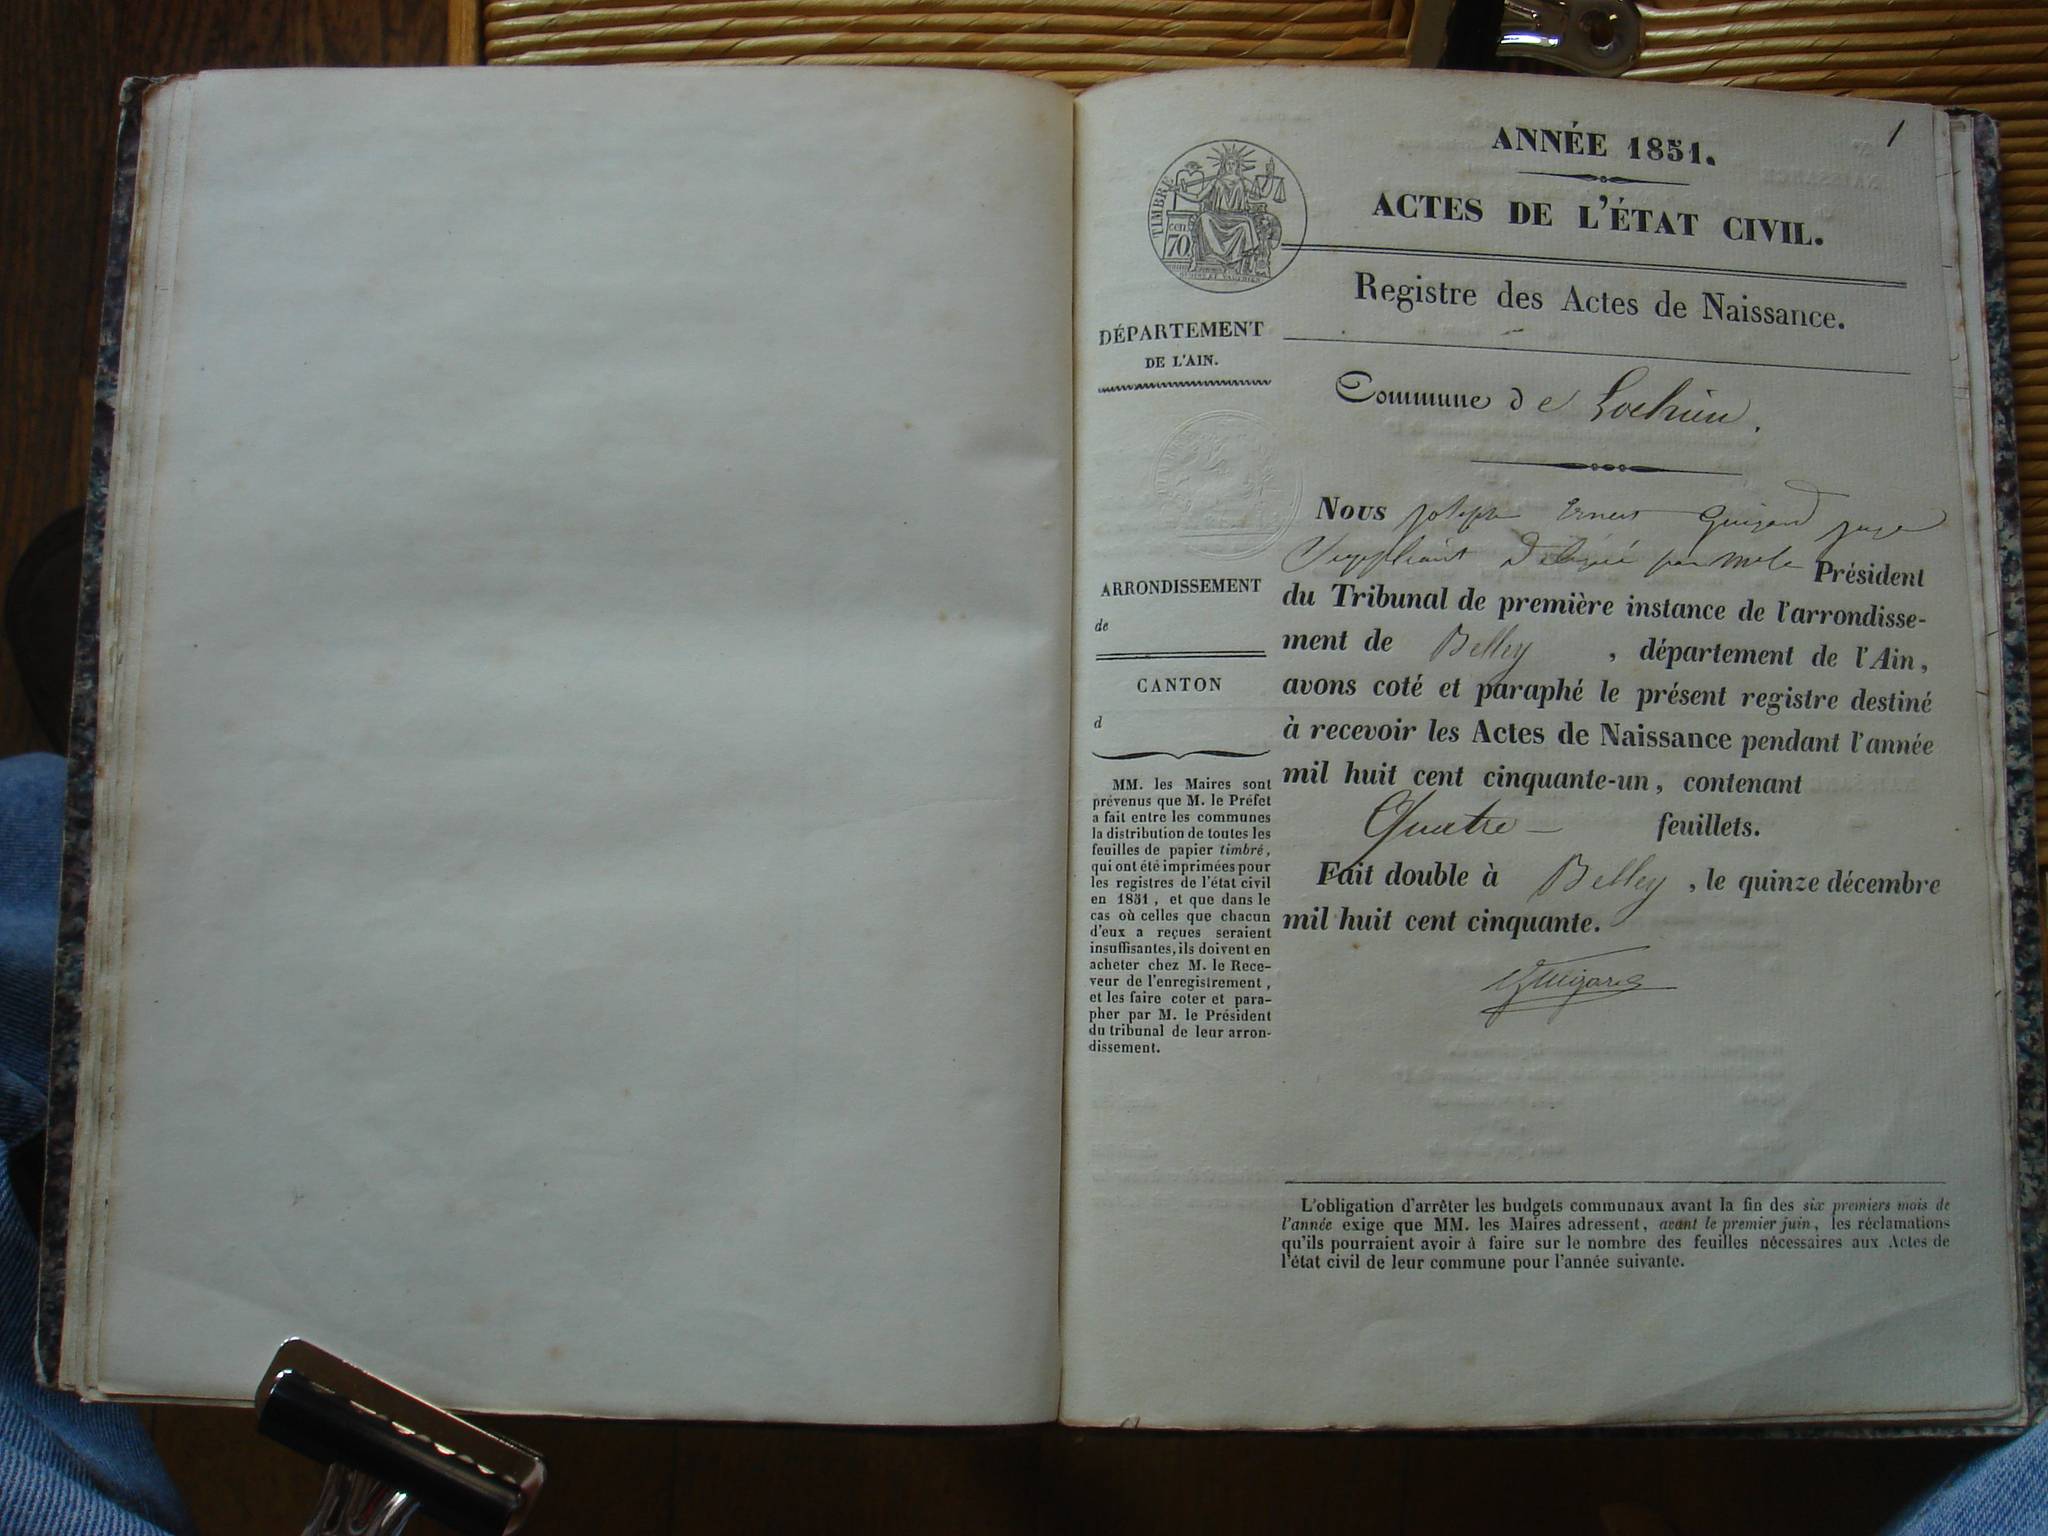 1
ANNÉE 1851.
ACTES DE L'ÉTAT CIVIL.
TIMBRE
cen
70
Registre des Actes de Naissance.
DÉPARTEMENT
DE L'AIN.
Commune de Lochieu.
ARRONDISSEMENT
de
CANTON
d
MM. les Maires sont
prévenus que M. le Préfet
a fait entre les communes
la distribution de toutes les
feuilles de papier timbré,
qui ont été imprimées pour
les registres de l'état civil
en 1851, et que dans le
cas où celles que chacun
d'eux a reçues seraient
insuffisantes, ils doivent en
acheter chez M. le Rece-
veur de l'enregistrement,
et les faire coter et para-
pher par M. le Président
du tribunal de leur arron-
dissement.
Nous Joseph Ernest Guigard juge
Suppléant Délégué par Mr le Président
du Tribunal de première instance de l'arrondisse-
ment de Belley, département de l'Ain,
avons coté et paraphé le présent registre destiné
à recevoir les Actes de Naissance pendant l'année
mil huit cent cinquante-un, contenant
Quatre feuillets.
Fait double à Belley, le quinze décembre
mil huit cent cinquante.
Guigard
L'obligation d'arrêter les budgets communaux avant la fin des six premiers mois de
l'année exige que MM. les Maires adressent, avant le premier juin, les réclamations
qu'ils pourraient avoir à faire sur le nombre des feuilles nécessaires aux Actes de
l'état civil de leur commune pour l'année suivante.